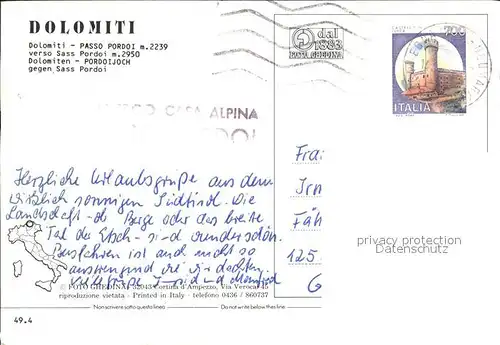 DOLOMITI
Dolomiti - PASSO PORDOI m.2239
verso Sass Pordoi m.2950
Dolomiten - PORDOIJOCH
gegen Sass Pordoi
dal
1883
FOTO GHEDINA
700
ITALIA
CASA ALPINA
Herzliche Urlaubsgrüße aus dem
wirklich sonnigen Südtirol. Die
Landschaft - die Berge oder das breite
Tal der Etsch - sind wunderschön.
Bergfahren ist auch nicht so
anstrengend wie wir dachten.
Viele Grüße
Frau
Irm
125
privacy protection
Datenschutz
© FOTO GHEDINA 32043 Cortina d'Ampezzo, Via Verocai 45
riproduzione vietata - Printed in Italy - telefono 0436 / 860737
Non scrivere sotto questa linea Do not write below this line
49.4